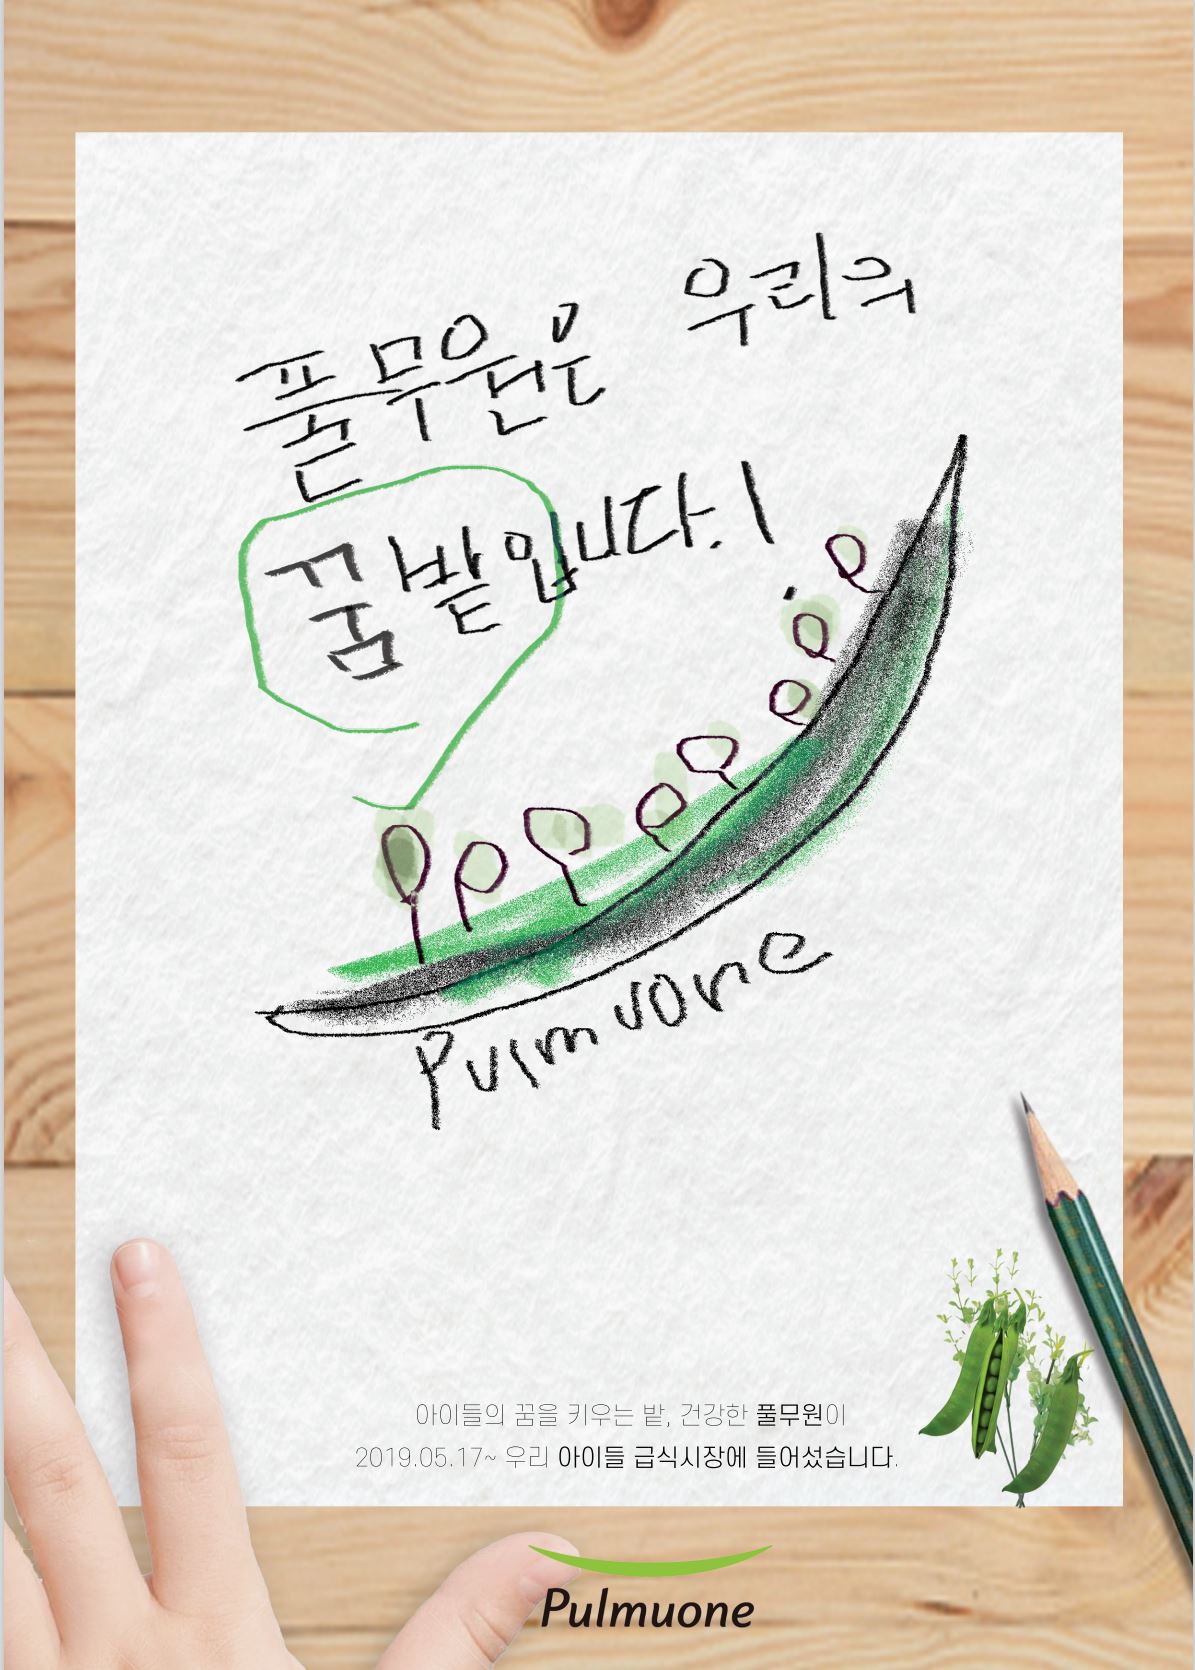 풀무원은 우리의
꿈밭입니다.!
Pulmuone
아이들의 꿈을 키우는 밭, 건강한 풀무원이
2019.05.17~ 우리 아이들 급식시장에 들어섰습니다.
Pulmuone